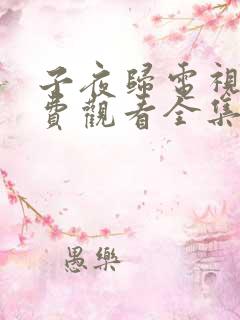 子夜歸電視
費觀看全集
愚樂